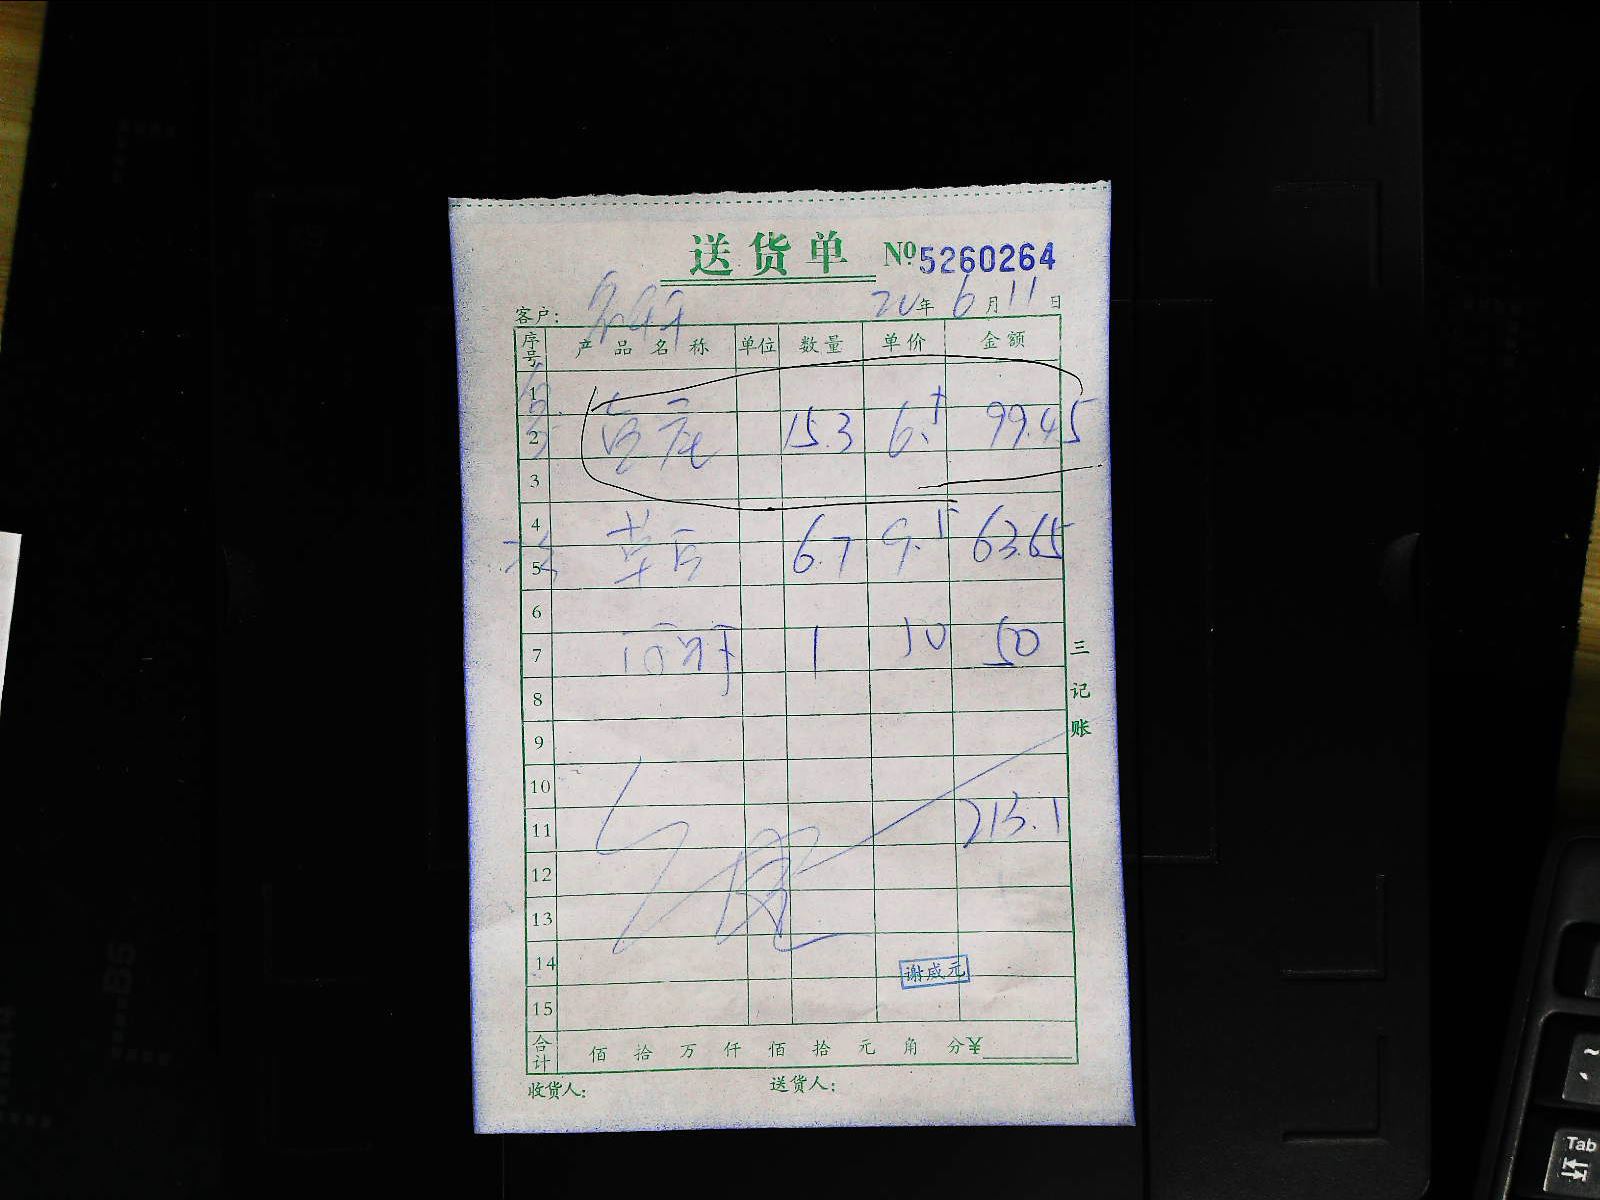 送货单 №5260264
客户: 20年6月11日
序号 产品名称 单位 数量 单价 金额
1
2 15.3 6.5 99.45
3
4
5 草鱼 6.7 9.5 63.65
6
7 1 50 50
8
9
10
11 213.1
12
13
14 谢成元
15
合计 佰 拾 万 仟 佰 拾 元 角 分¥
收货人: 送货人:
三记账
B5
Tab